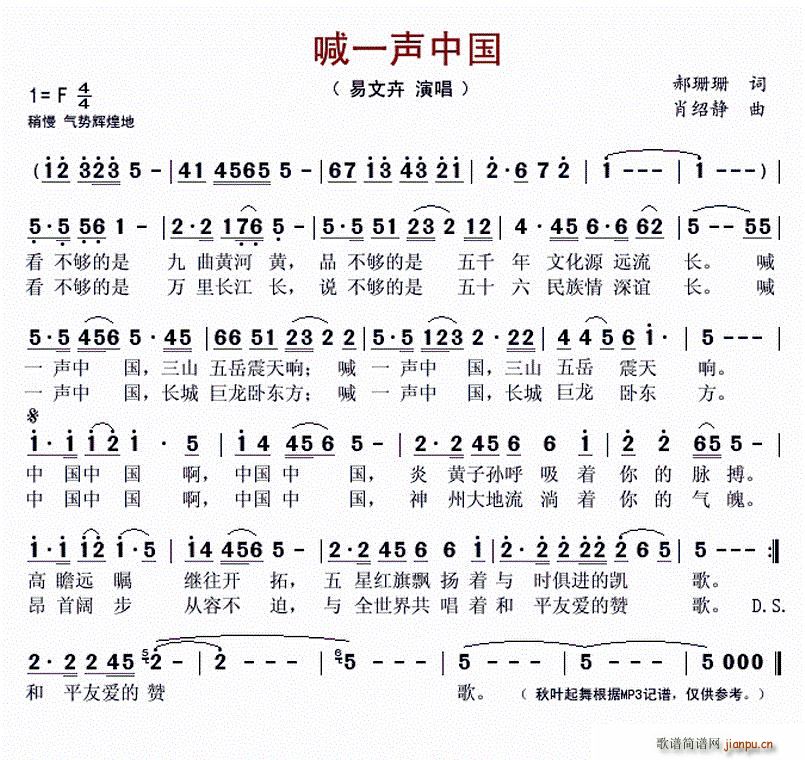 喊一声中国
（ 易文卉 演唱 ）
郝珊珊 词
肖绍静 曲
1= F 4/4
稍慢 气势辉煌地
( 12 323 5 - | 41 4565 5 - | 67 13 43 21 | 2·6 7 2 | 1 - - - | 1 - - - ) |
5·5 56 1 - | 2·2 176 5 - | 5·5 51 23 2 12 | 4·45 6·6 62 | 5 - - 55 |
看 不够的是 九 曲黄河 黄，品 不够的是 五千 年 文化源 远流 长。 喊
看 不够的是 万 里长江 长，说 不够的是 五十 六 民族情 深谊 长。 喊
5·5 456 5·45 | 66 51 23 2 2 | 5·5 123 2·22 | 4 4 5 6 1· | 5 - - - |
一 声中 国，三山 五岳震天响；喊 一 声中 国，三山 五岳 震天 响。
一 声中 国，长城 巨龙卧东方；喊 一 声中 国，长城 巨龙 卧东 方。
1·1 12 1 · 5 | 1 4 456 5 - | 2·2 456 6 1 | 2 2 65 5 - |
中 国中 国 啊，中国 中 国， 炎 黄子孙呼 吸 着 你 的 脉 搏。
中 国中 国 啊，中国 中 国， 神 州大地流 淌 着 你 的 气 魄。
1·1 12 1·5 | 14 456 5 - | 2·2 456 6 1 | 2·2 22 2 6 5 | 5 - - - :‖
高 瞻远 嘱 继往开 拓， 五 星红旗飘 扬 着 与 时俱进的凯 歌。
昂 首阔 步 从容不 迫， 与 全世界共 唱 着 和 平友爱的赞 歌。 D.S.
2·2 22 45 5 2 - | 2 - - - | 6 5 - - - | 5 - - - | 5 - - - | 5 000 ‖
和 平友爱的 赞 歌。 （ 秋叶起舞根据MP3记谱，仅供参考。）
歌谱简谱网
jianpu.cn